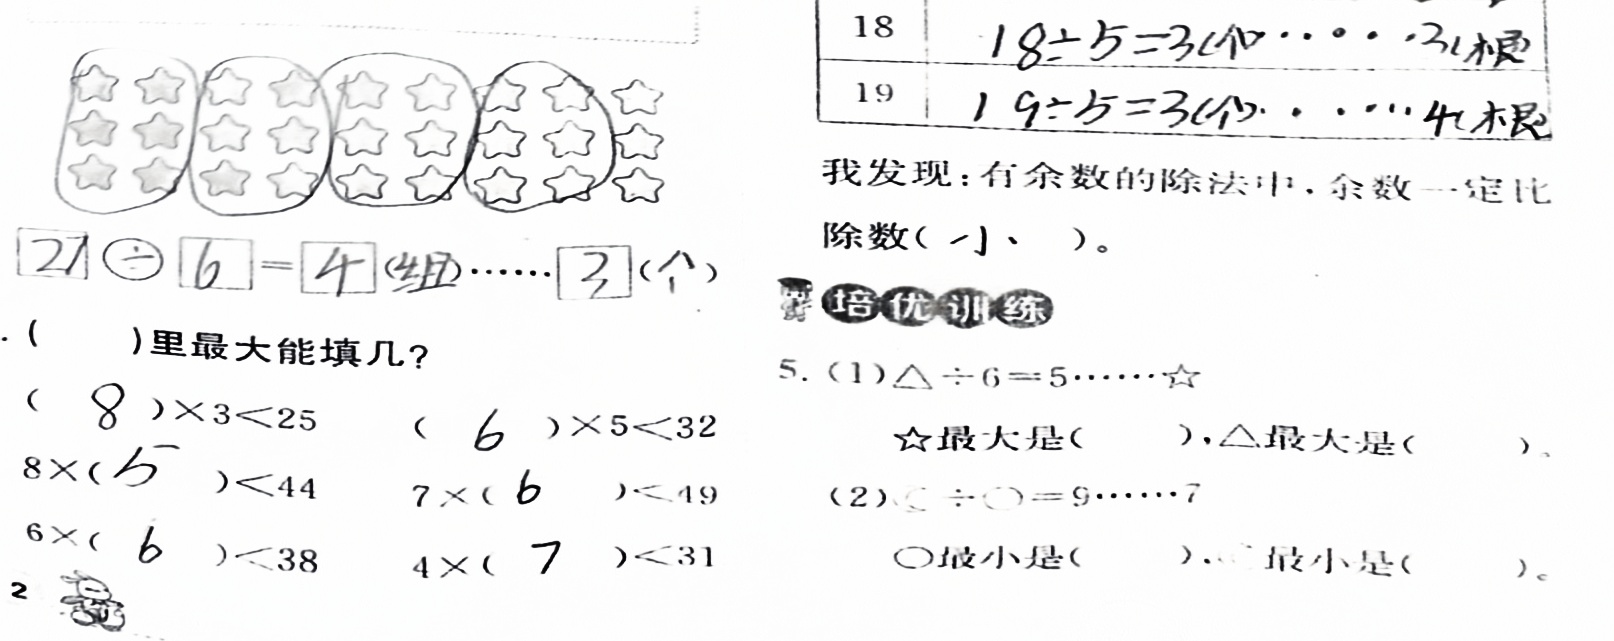 21÷6=4(组)……3(个)
.(　　)里最大能填几?
(8)×3<25　(6)×5<32
8×(5)<44　7×(6)<49
6×(6)<38　4×(7)<31
2
18　18÷5=3(个)……3(根)
19　19÷5=3(个)……4(根)
我发现:有余数的除法中,余数一定比
除数(小、)。
培优训练
5.(1)△÷6=5……☆
☆最大是(　　),△最大是(　　)。
(2)÷○=9……7
○最小是(　　),最小是(　　)。